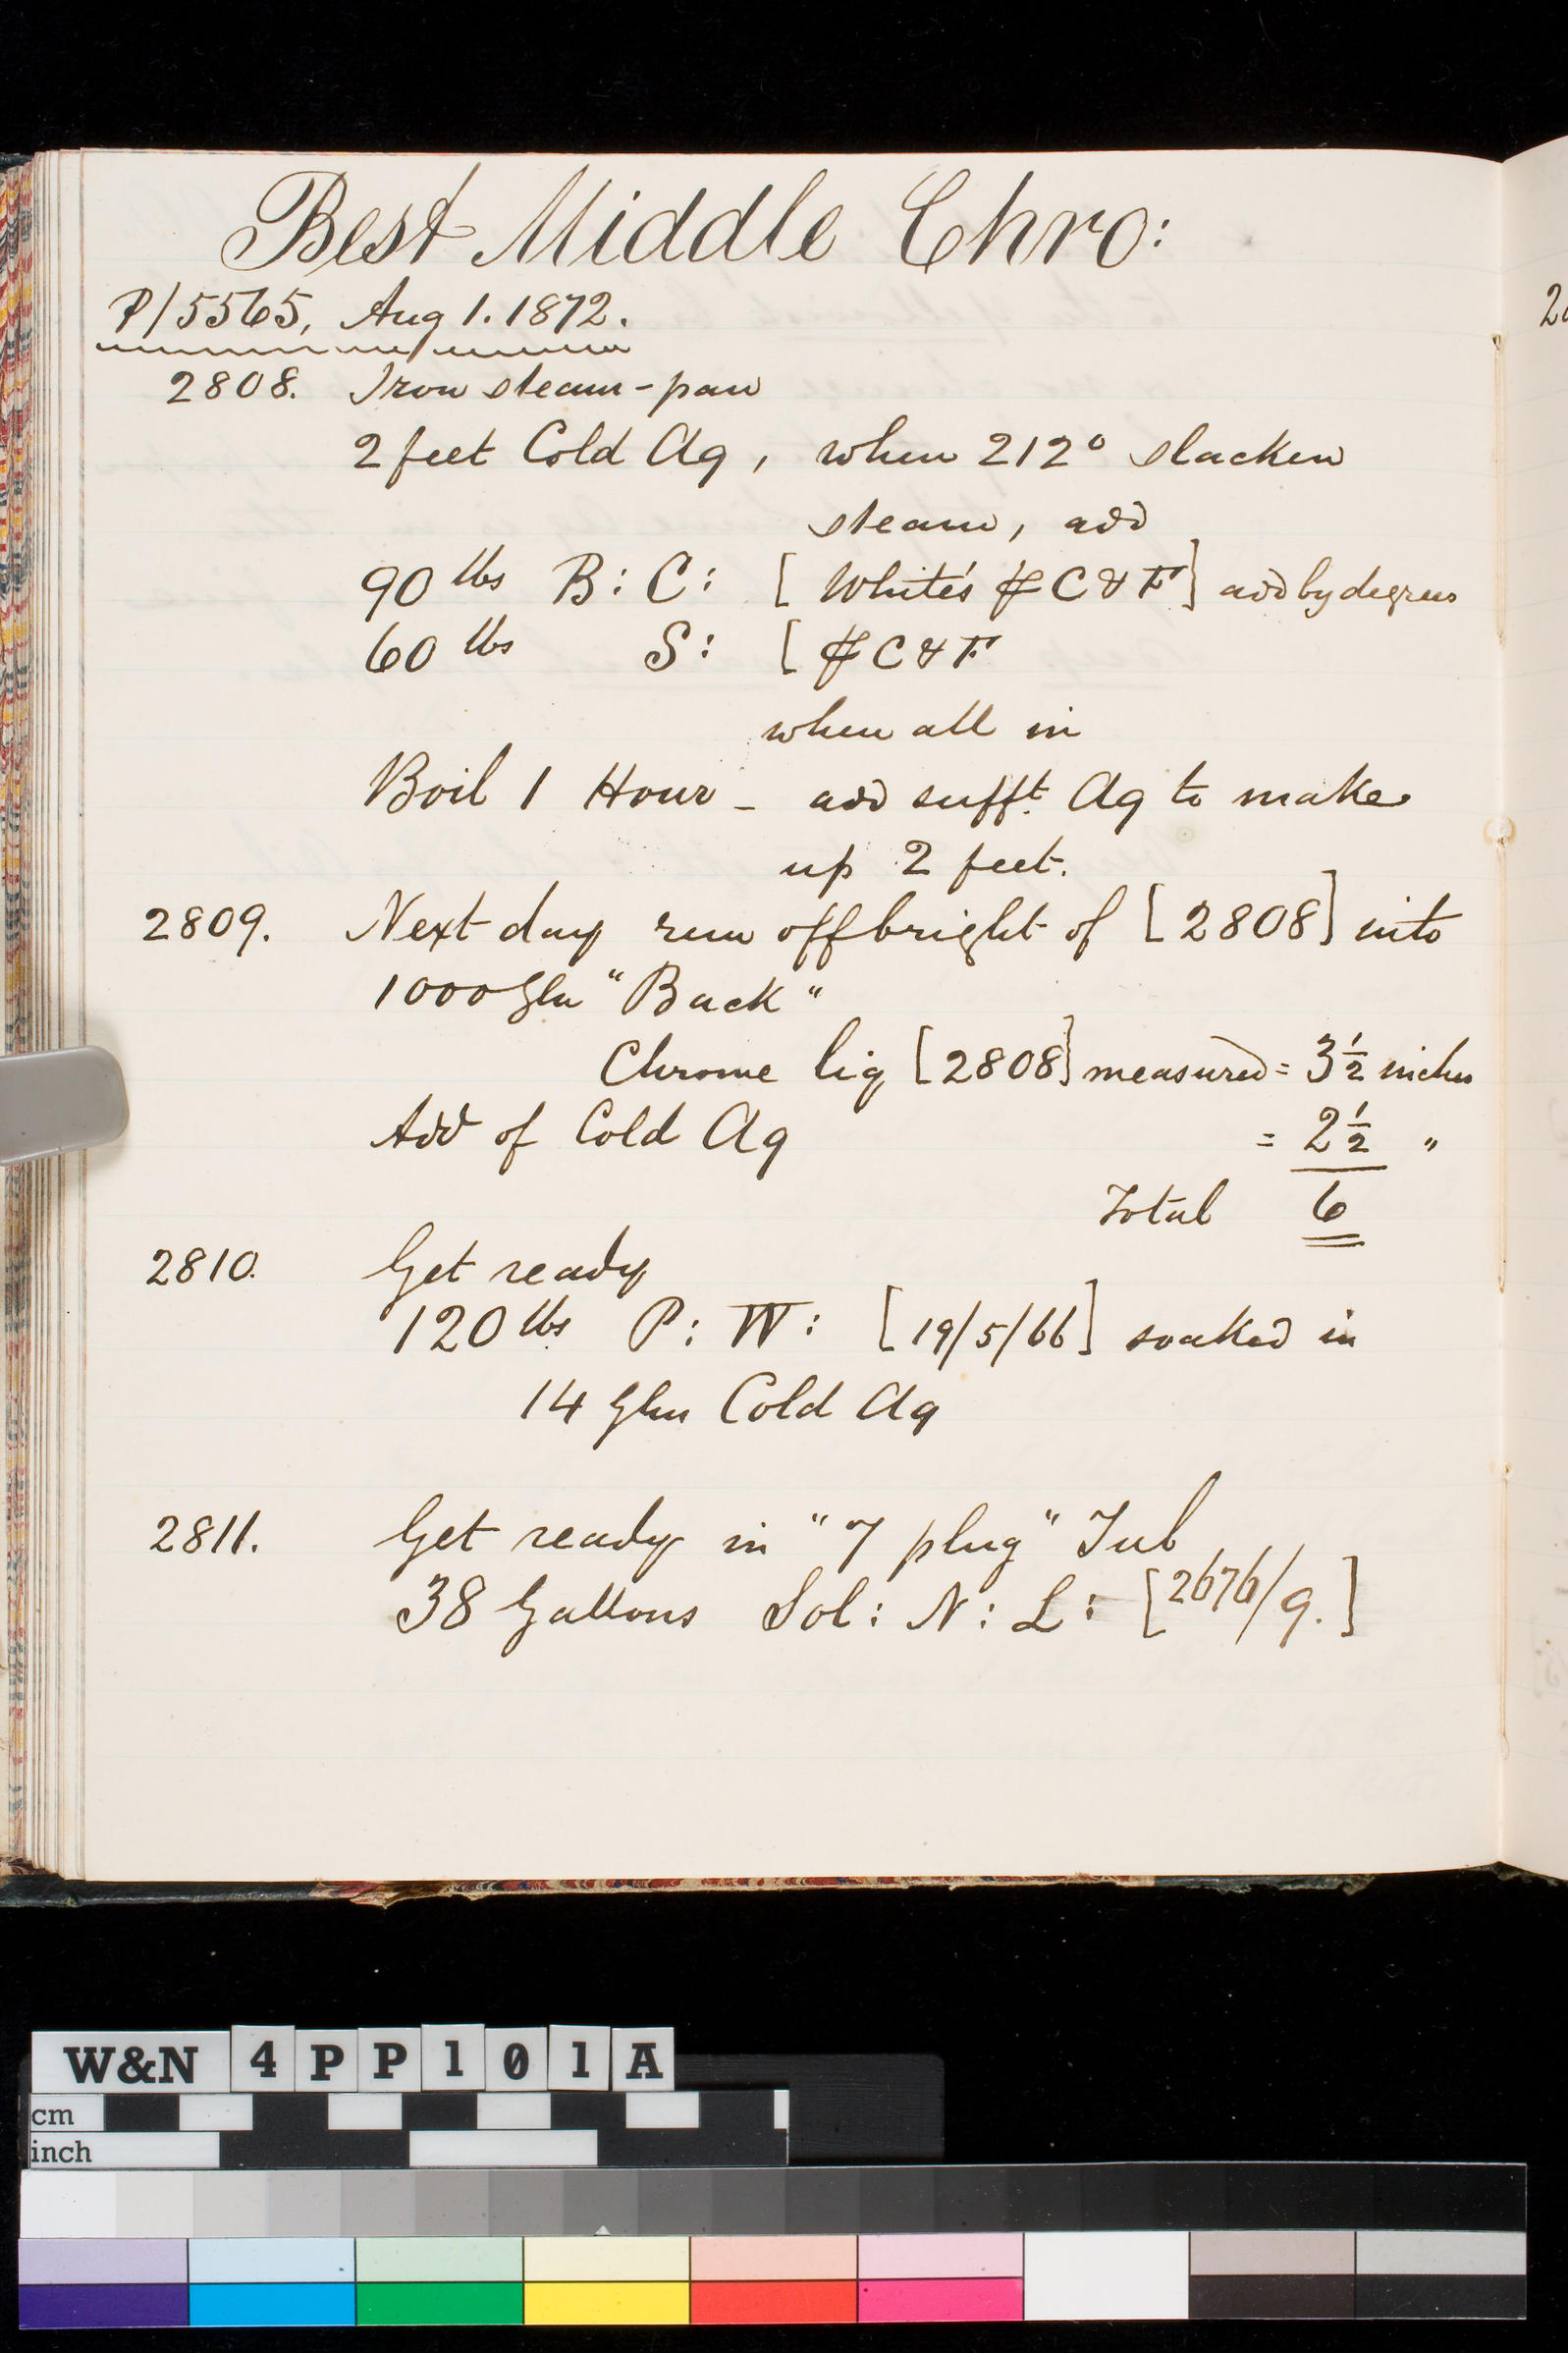 Best Middle Chro:
P/5565, Aug 1. 1872.
2808. Iron steam-pan
2 feet Cold Aq, when 212° slacken
steam, add
90 lbs B: C: [White's C & F] add by degrees
60 lbs S: [ C & F
when all in
Boil 1 Hour - add sufft. Aq to make
up 2 feet.
2809. Next day run off bright of [2808] into
1000 Gln "Back"
Chrome liq [2808] measured = 3½ inches
Add of Cold Aq = 2½ "
Total 6
2810. Get ready
120 lbs P: W: [19/5/66] soaked in
14 Glns Cold Aq
2811. Get ready in "7 plug" Tub
38 Gallons Sol: N: L: [2676/9.]
W&N 4PP101A
cm
inch